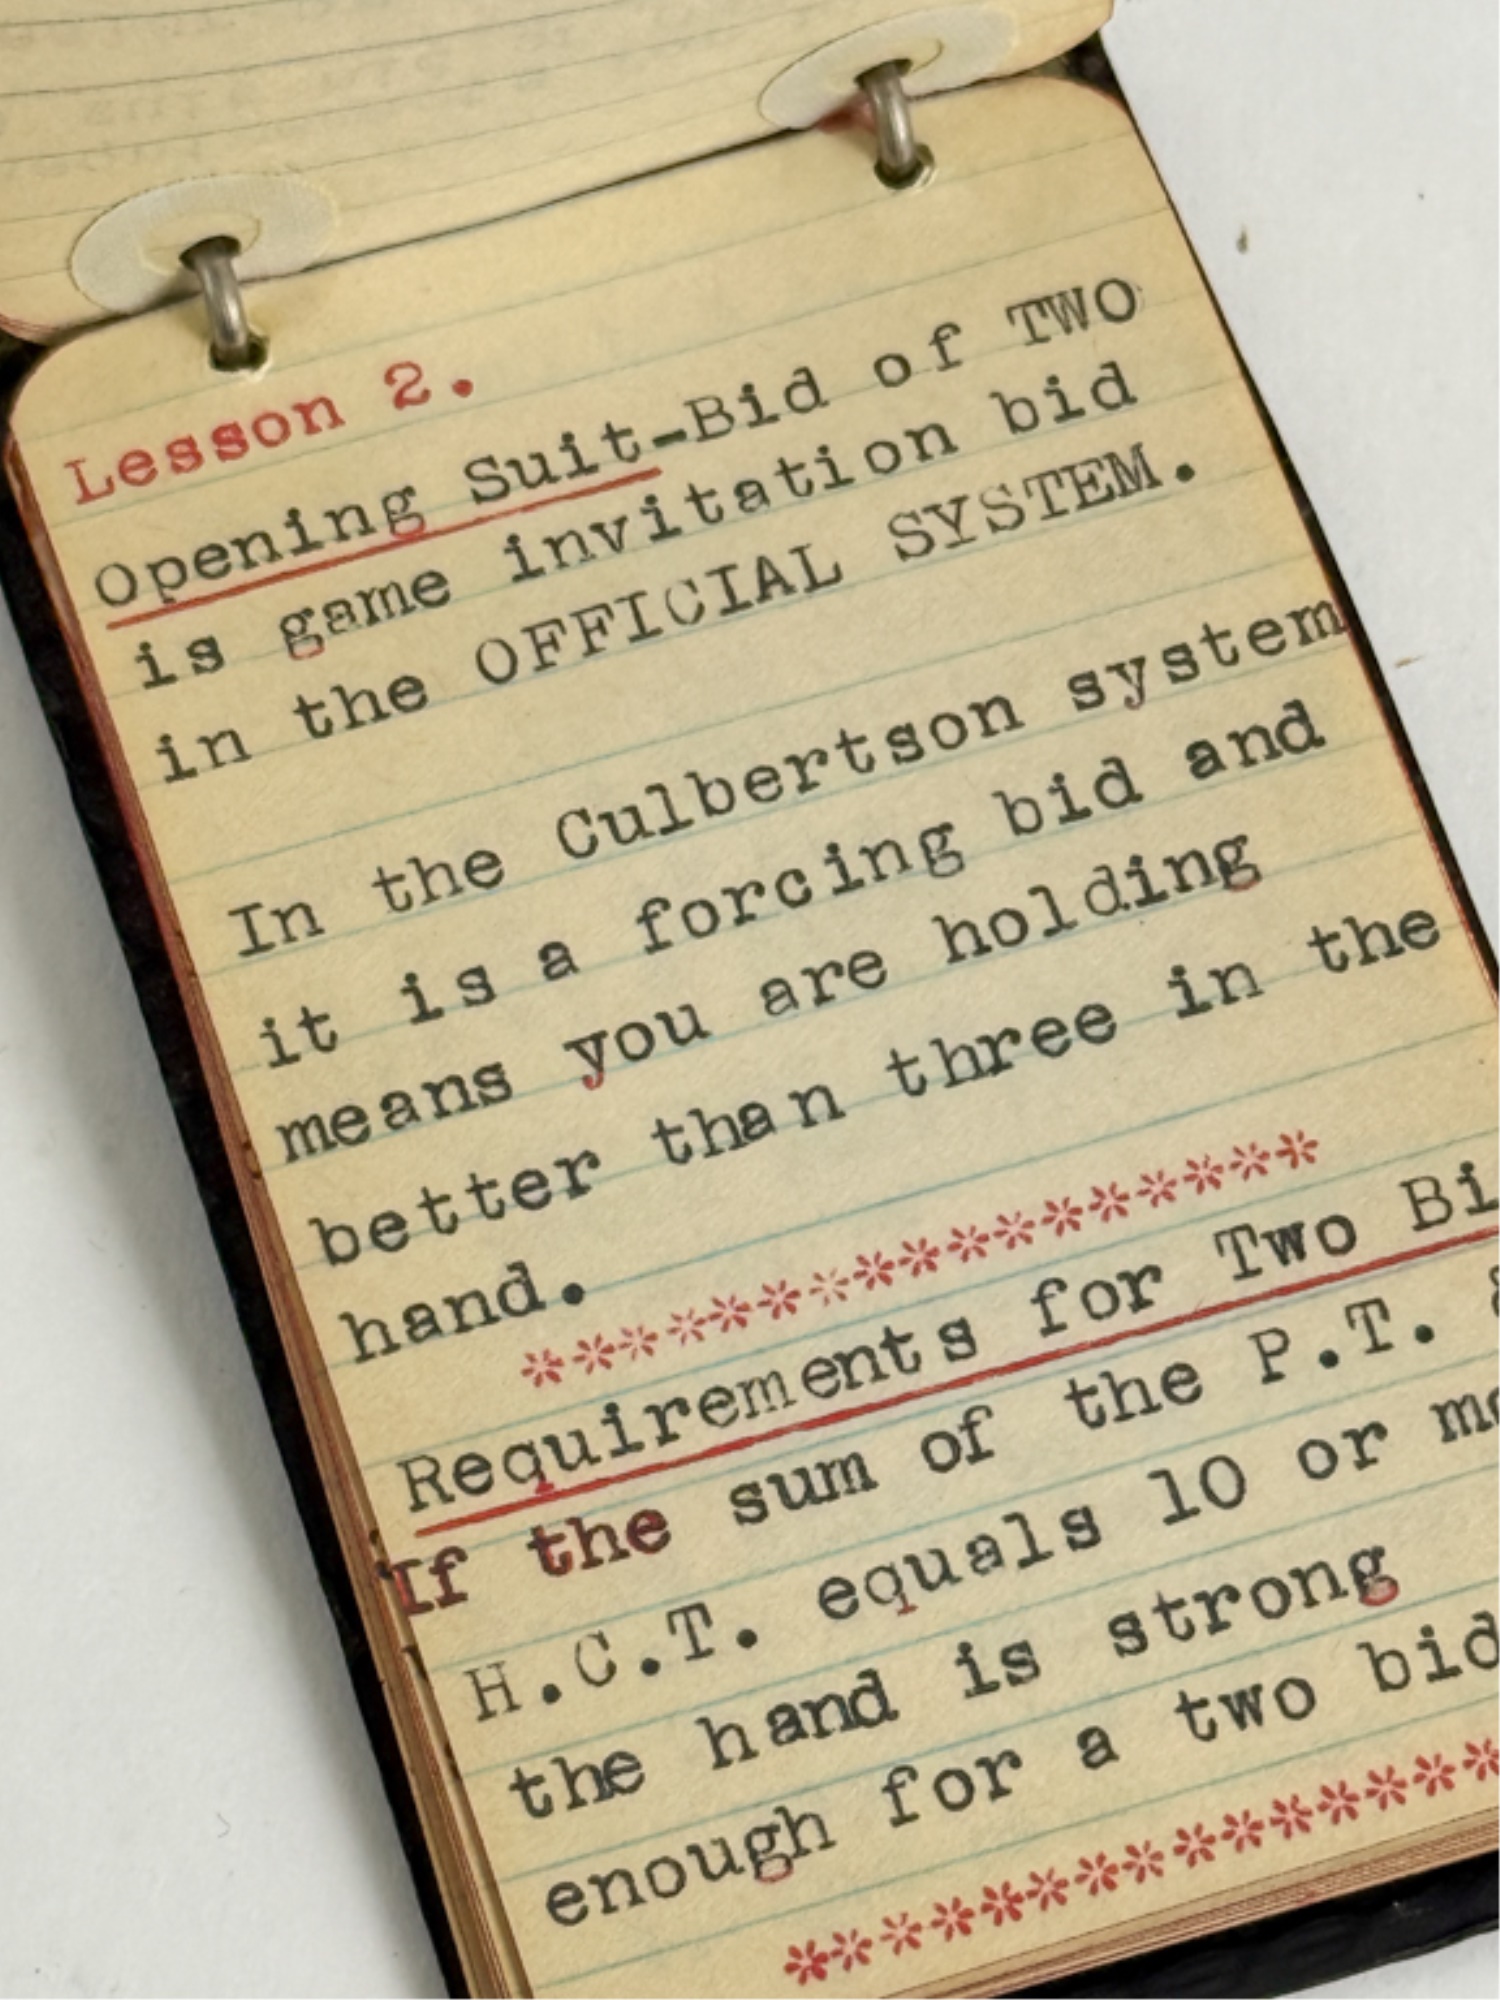 Lesson 2.
Opening Suit-Bid of TWO
is game invitation bid
in the OFFICIAL SYSTEM.
In the Culbertson system
it is a forcing bid and
means you are holding
better than three in the
hand.
*****************
Requirements for Two
If the sum of the P.T. &
H.C.T. equals 10 or
the hand is strong
enough for a two bid
***************